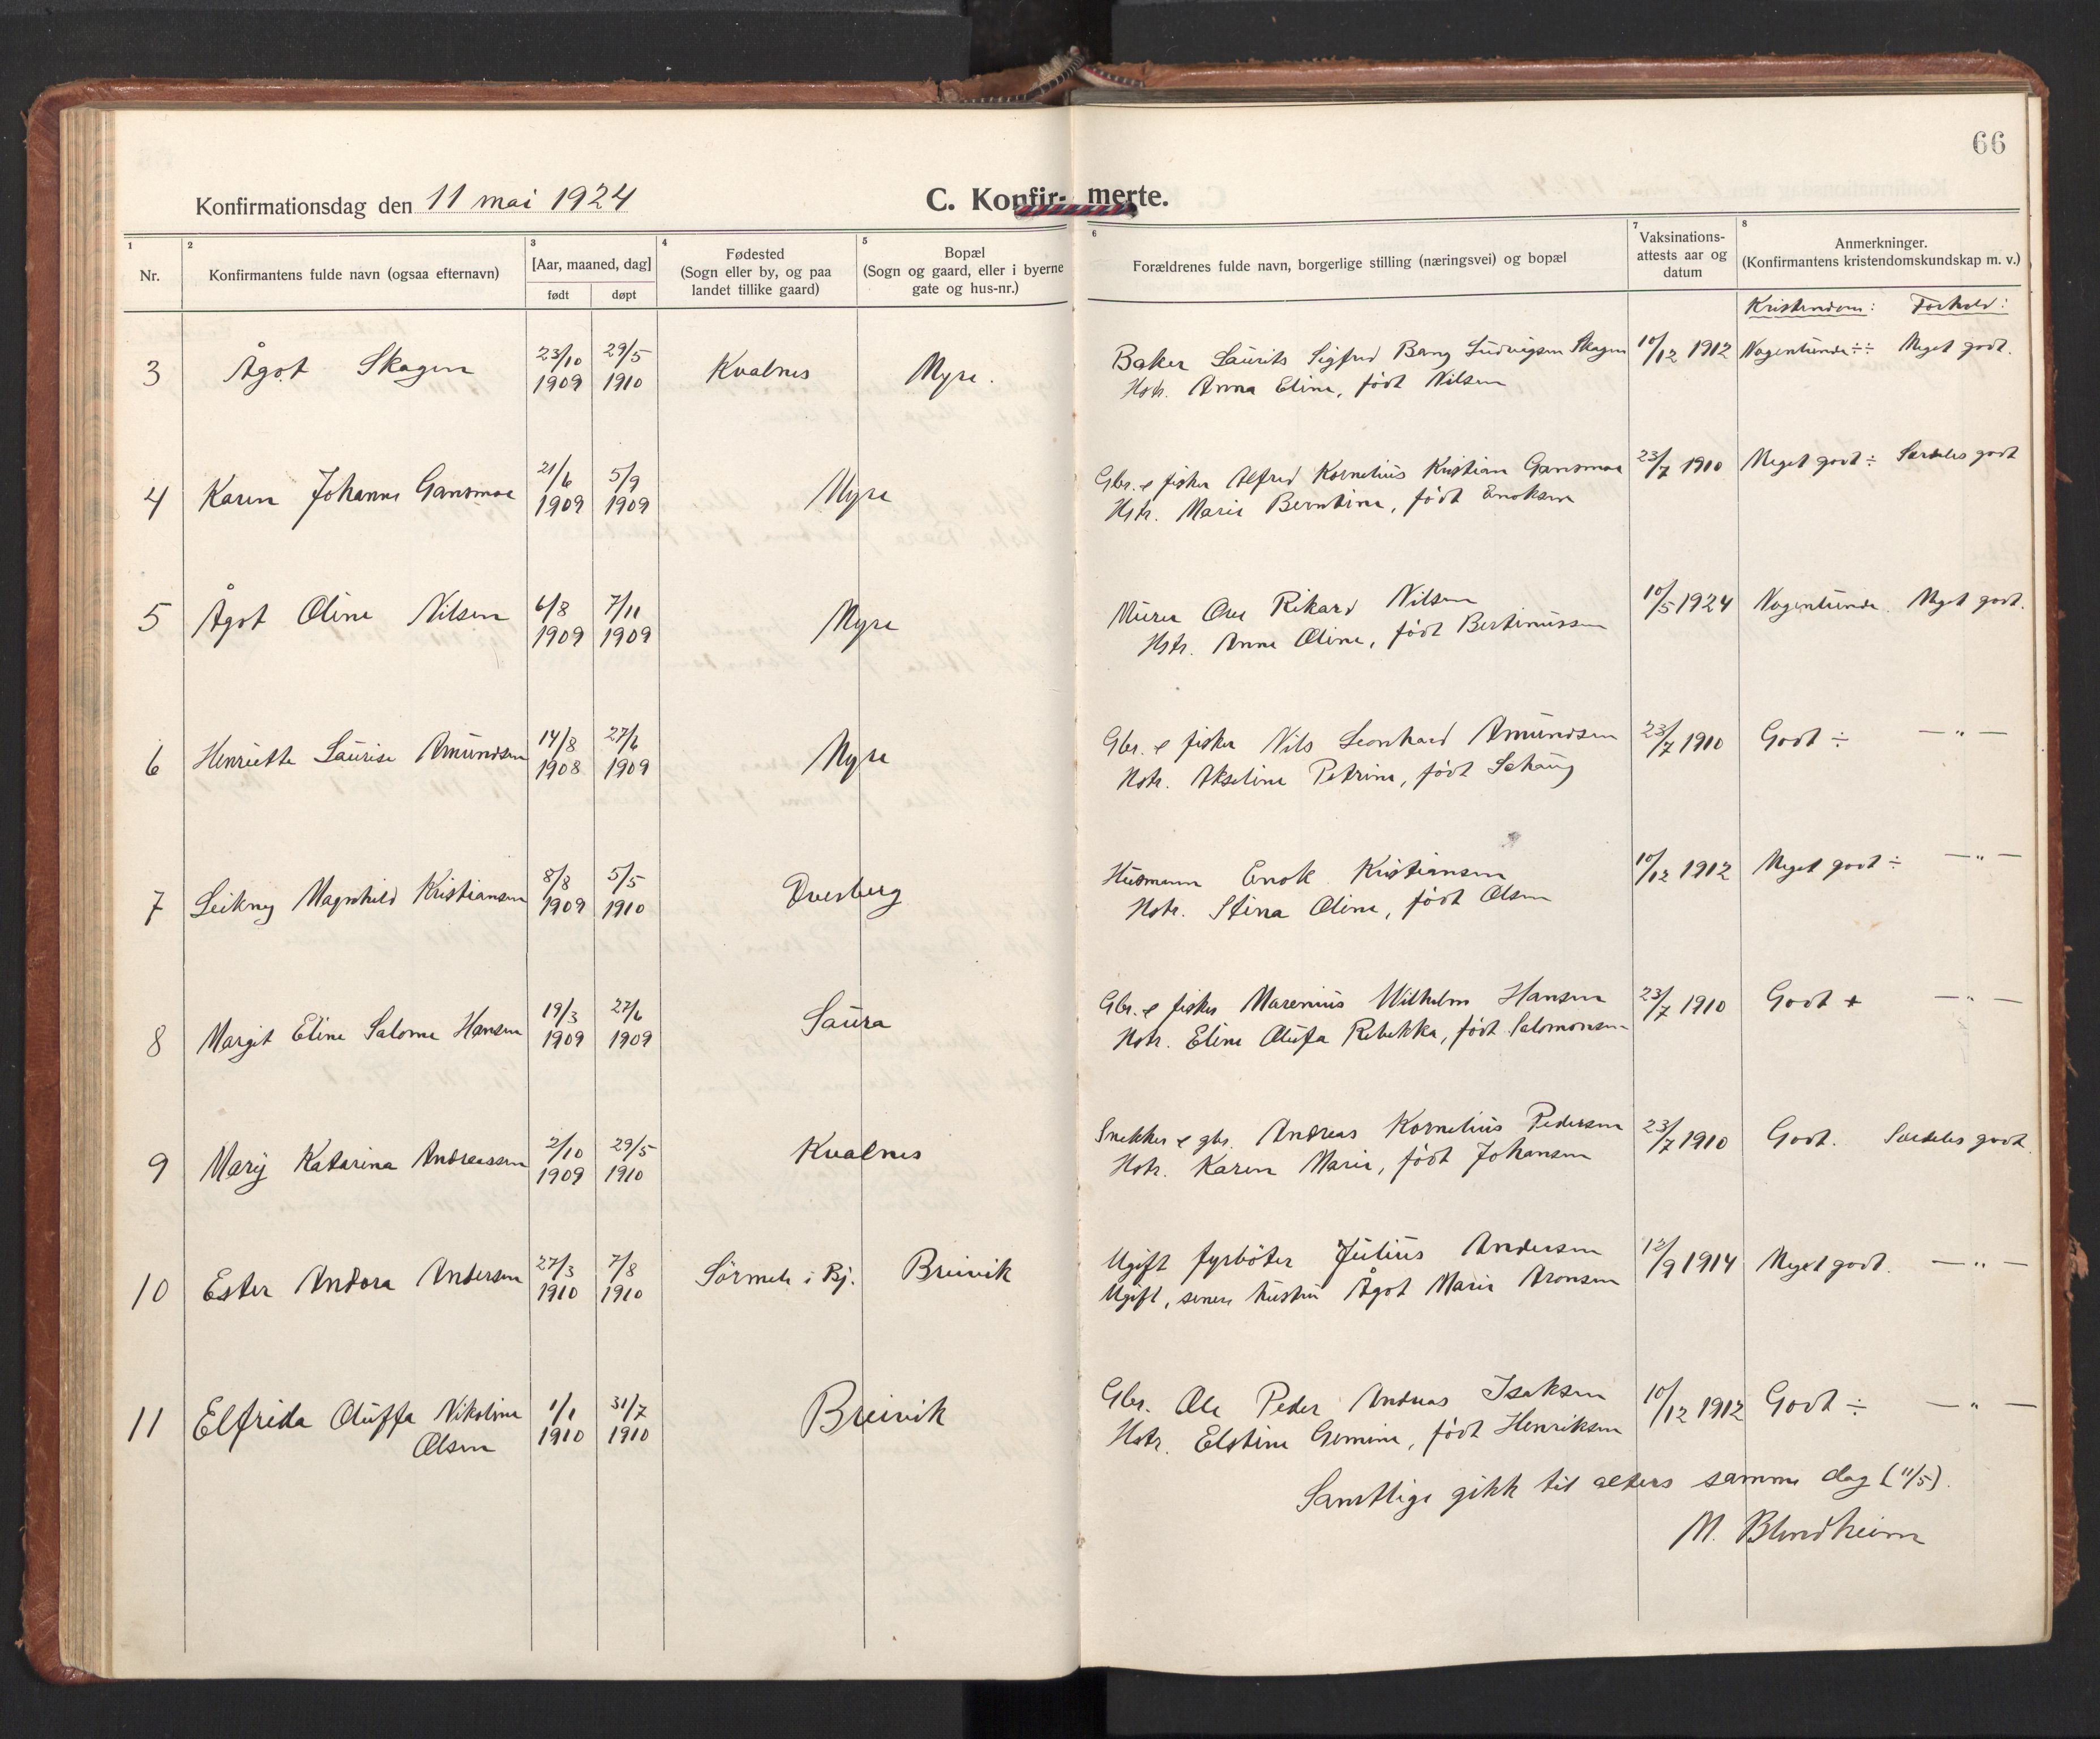 66
Konfirmationsdag den 11 mai 1924
C. Konfir- merte.
1 2 3 4 5 6 7 8
Nr.
Konfirmantens fulde navn (ogsaa efternavn)
[Aar, maaned, dag]
født døpt
Fødested
(Sogn eller by, og paa
landet tillike gaard)
Bopæl
(Sogn og gaard, eller i byerne
gate og hus-nr.)
Forældrenes fulde navn, borgerlige stilling (næringsvei) og bopæl
Vaksinations-
attests aar og
datum
Anmerkninger.
(Konfirmantens kristendomskundskap m. v.)
Kristendom: Forhold:
3 Ågot Skagen 23/10 1909 29/5 1910 Kvalnes Myre. Baker Laurits Sigfred Bang Ludvigsen Skagen 10/12 1912 Nogenlunde ÷÷ Meget godt.
Hstr. Anna Eline, födt Nilsen
4 Karen Johanne Gansmoe 21/6 1909 5/9 1909 Myre Gbr. & fisker Alfred Kornelius Kristian Gansmoe 23/7 1910 Meget godt ÷ Særdeles godt
Hstr. Marie Berntine, födt Enoksen
5 Ågot Oline Nilsen 6/8 1909 7/11 1909 Myre Murer Ole Rikard Nilsen 10/5 1924 Nogenlunde. Meget godt.
Hstr. Anne Oline, födt Bertinussen
6 Henriette Laurise Amundsen 14/8 1908 27/6 1909 Myre Gbr. & fisker Nils Leonhard Amundsen 23/7 1910 Godt ÷ — " —
Hstr. Akseline Petrine, födt Sehaug
7 Leikny Magnhild Kristiansen 8/8 1909 5/5 1910 Dverberg Husmann Enok Kristiansen 10/12 1912 Meget godt ÷ — " —
Hstr. Stina Oline, födt Olsen
8 Margit Eline Salome Hansen 19/3 1909 27/6 1909 Saura Gbr. & fisker Marenius Wilhelm Hansen 23/7 1910 Godt + — " —
Hstr. Eline Olufa Rebekka, födt Salomonsen
9 Mary Katarina Andreassen 2/10 1909 29/5 1910 Kvalnes Snekker & gbr. Andreas Kornelius Pedersen 23/7 1910 Godt. Særdeles godt.
Hstr. Karen Marie, födt Johansen
10 Ester Andora Andersen 27/3 1910 7/8 1910 Sörmela i Bj. Breivik Ugift fyrböter Julius Andersen 12/9 1914 Meget godt. — " —
Ugift, senere hustru Ågot Marie Aronsen
11 Elfrida Oluffa Nikoline 1/1 1910 31/7 1910 Breivik Gbr. Ole Peder Andreas Isaksen 10/12 1912 Godt ÷ — " —
Olsen Hstr. Elstine Gemine, födt Henriksen
Samtlige gikk til alters samme dag (11/5).
M. Blindheim